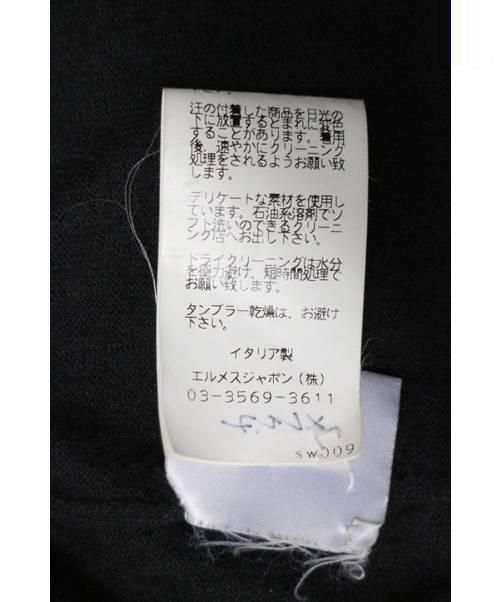 汗の付着した商品を日光の
下に放置するとまれに変色
することがあります。着用
後、速やかにクリーニング
処理をされるようお願い致
します。
デリケートな素材を使用し
ています。石油系溶剤でソ
フト洗いのできるクリーニ
ング店へお出し下さい。
ドライクリーニングは水分
を極力避け、短時間処理で
お願い致します。
タンブラー乾燥は、お避け
下さい。
イタリア製
エルメスジャポン(株)
03-3569-3611
SW009